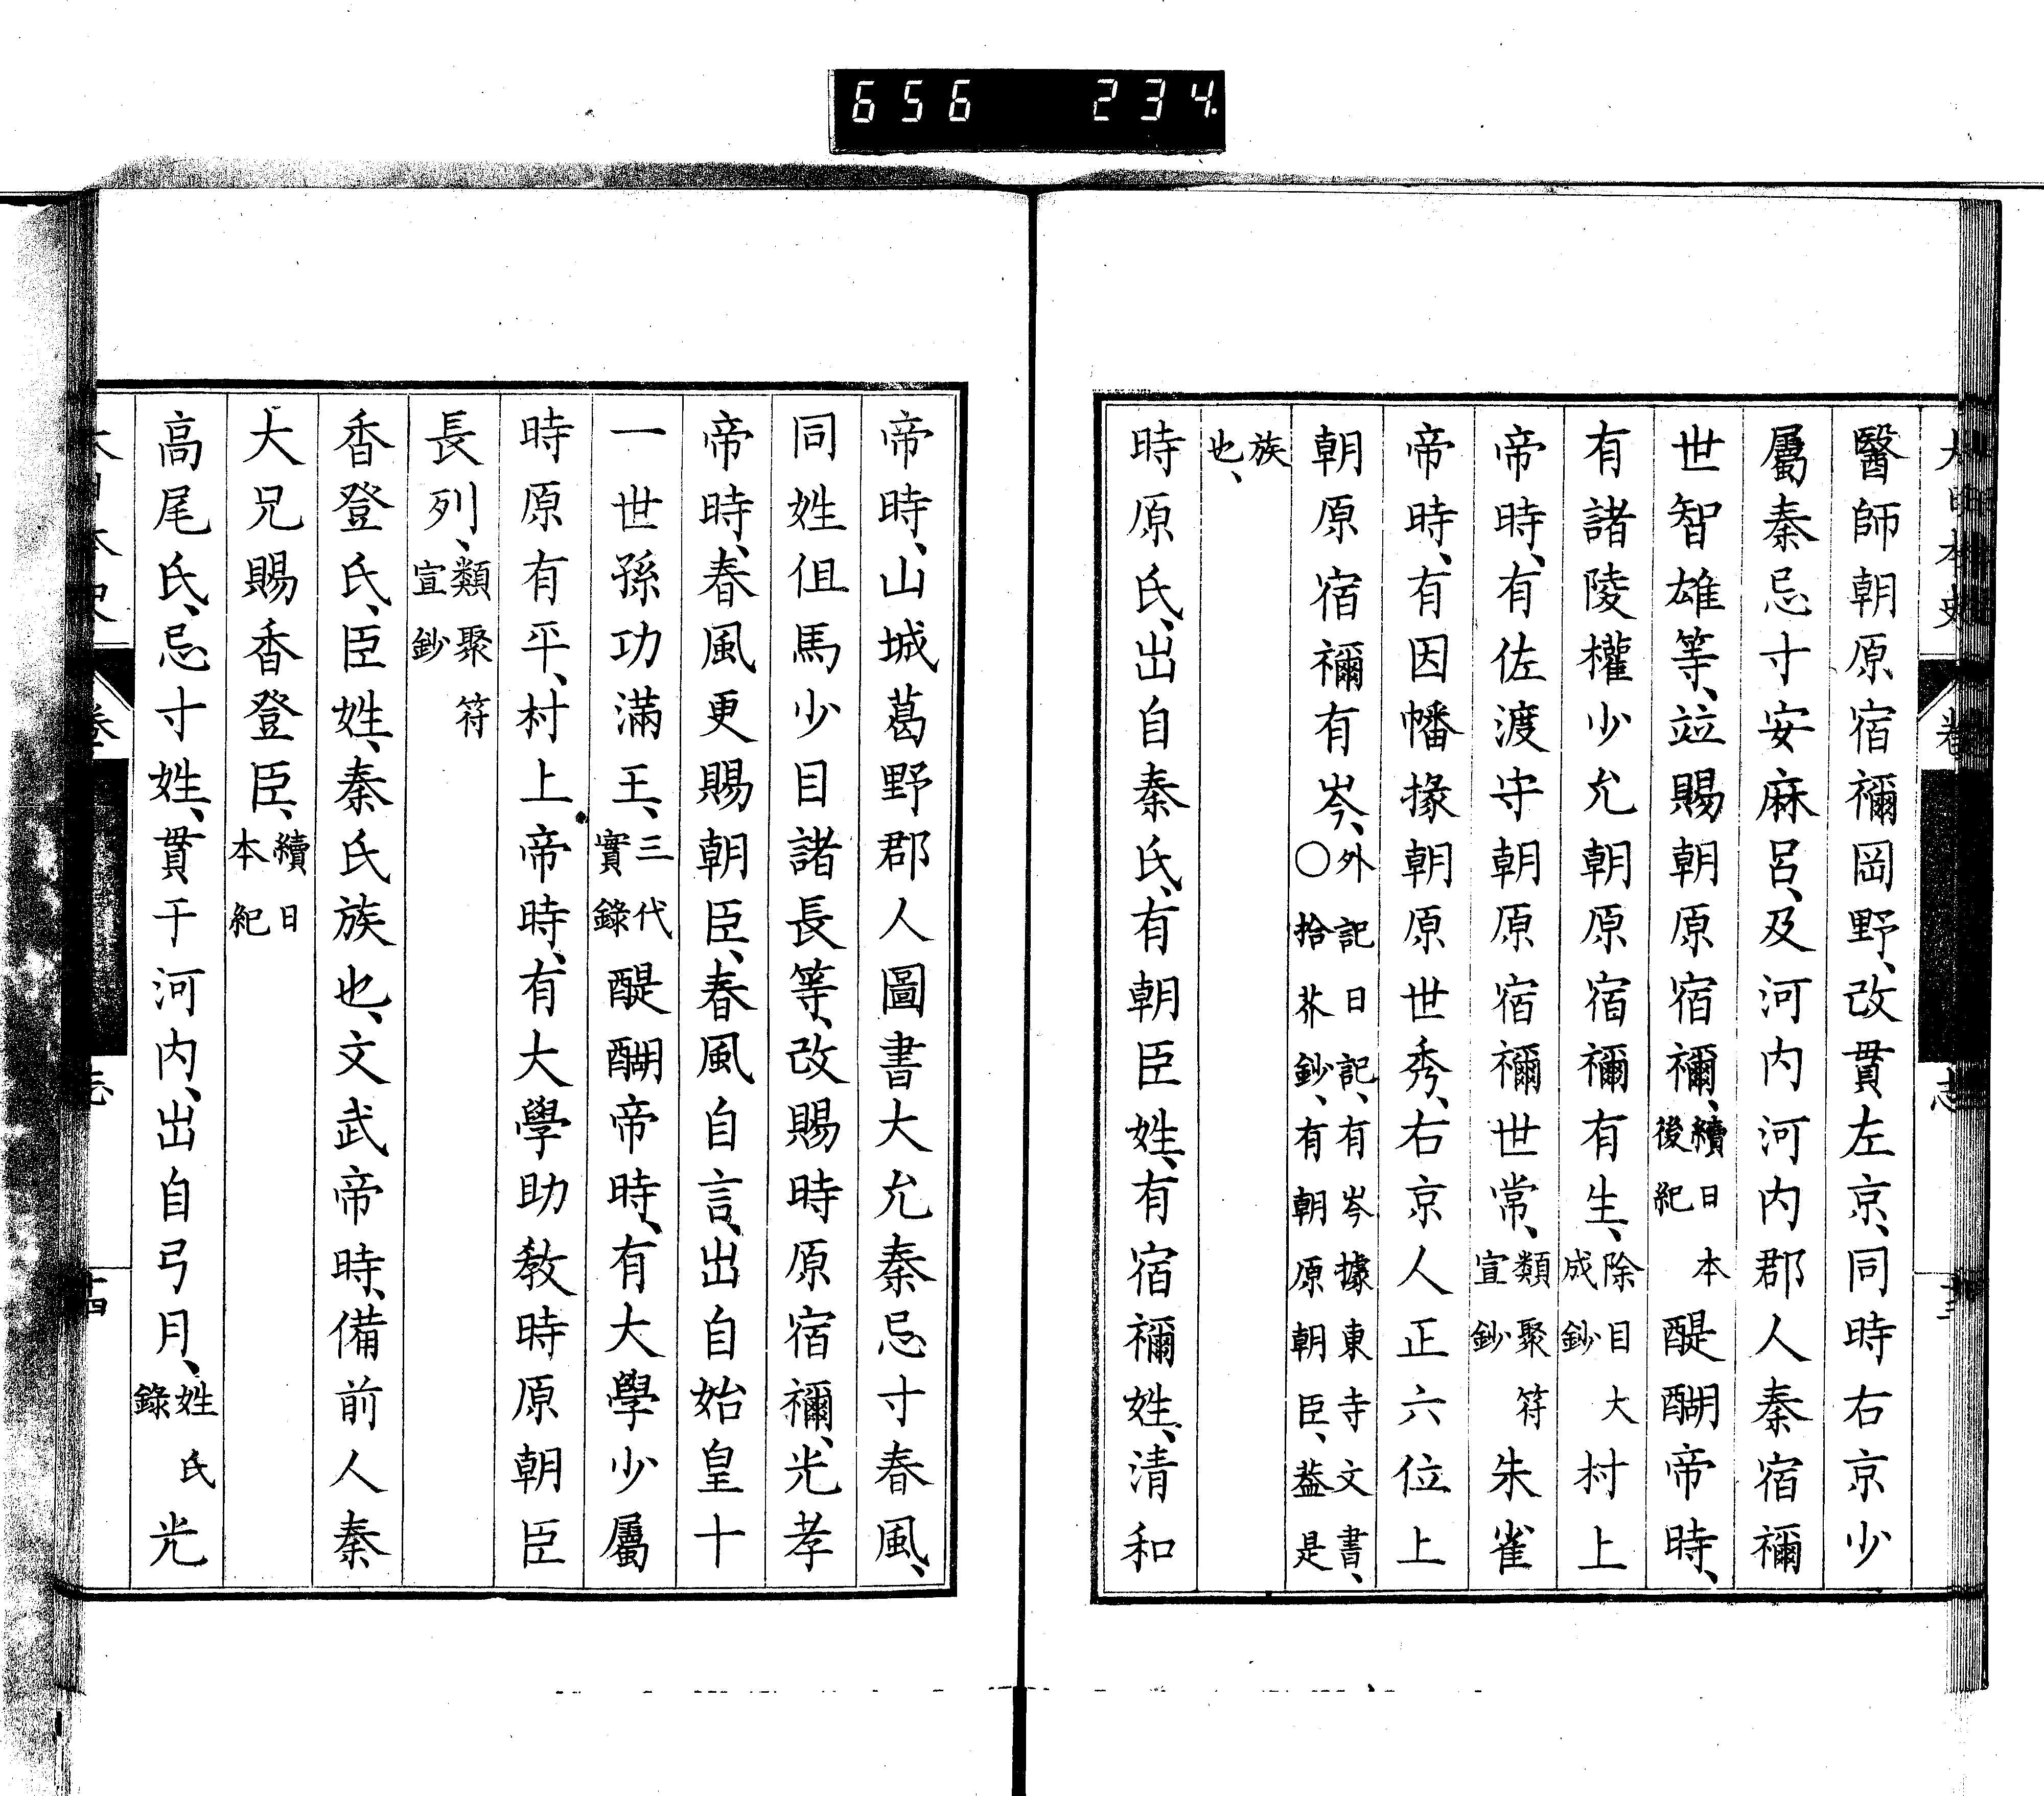 656 234
大日本史 卷 志
醫師朝原宿禰岡野、改貫左京、同時右京少
屬秦忌寸安麻呂、及河內河內郡人秦宿禰
世智雄等、竝賜朝原宿禰、續日本後紀醍醐帝時、
有諸陵權少允朝原宿禰有生、除目大成鈔村上
帝時、有佐渡守朝原宿禰世常、類聚符宣鈔朱雀
帝時、有因幡掾朝原世秀、右京人正六位上
朝原宿禰有岑、外記日記、有岑據東寺文書、〇拾芥鈔、有朝原朝臣、蓋是
族也、
時原氏、出自秦氏、有朝臣姓、有宿禰姓、清和
帝時、山城葛野郡人圖書大允秦忌寸春風、
同姓伹馬少目諸長等、改賜時原宿禰、光孝
帝時、春風更賜朝臣、春風自言、出自始皇十
一世孫功滿王、三代實錄醍醐帝時、有大學少屬
時原有平、村上帝時、有大學助教時原朝臣
長列、類聚符宣鈔
香登氏、臣姓、秦氏族也、文武帝時、備前人秦
大兄賜香登臣、續日本紀
高尾氏、忌寸姓、貫于河內、出自弓月、姓氏錄光
大日本史 卷 志 十四